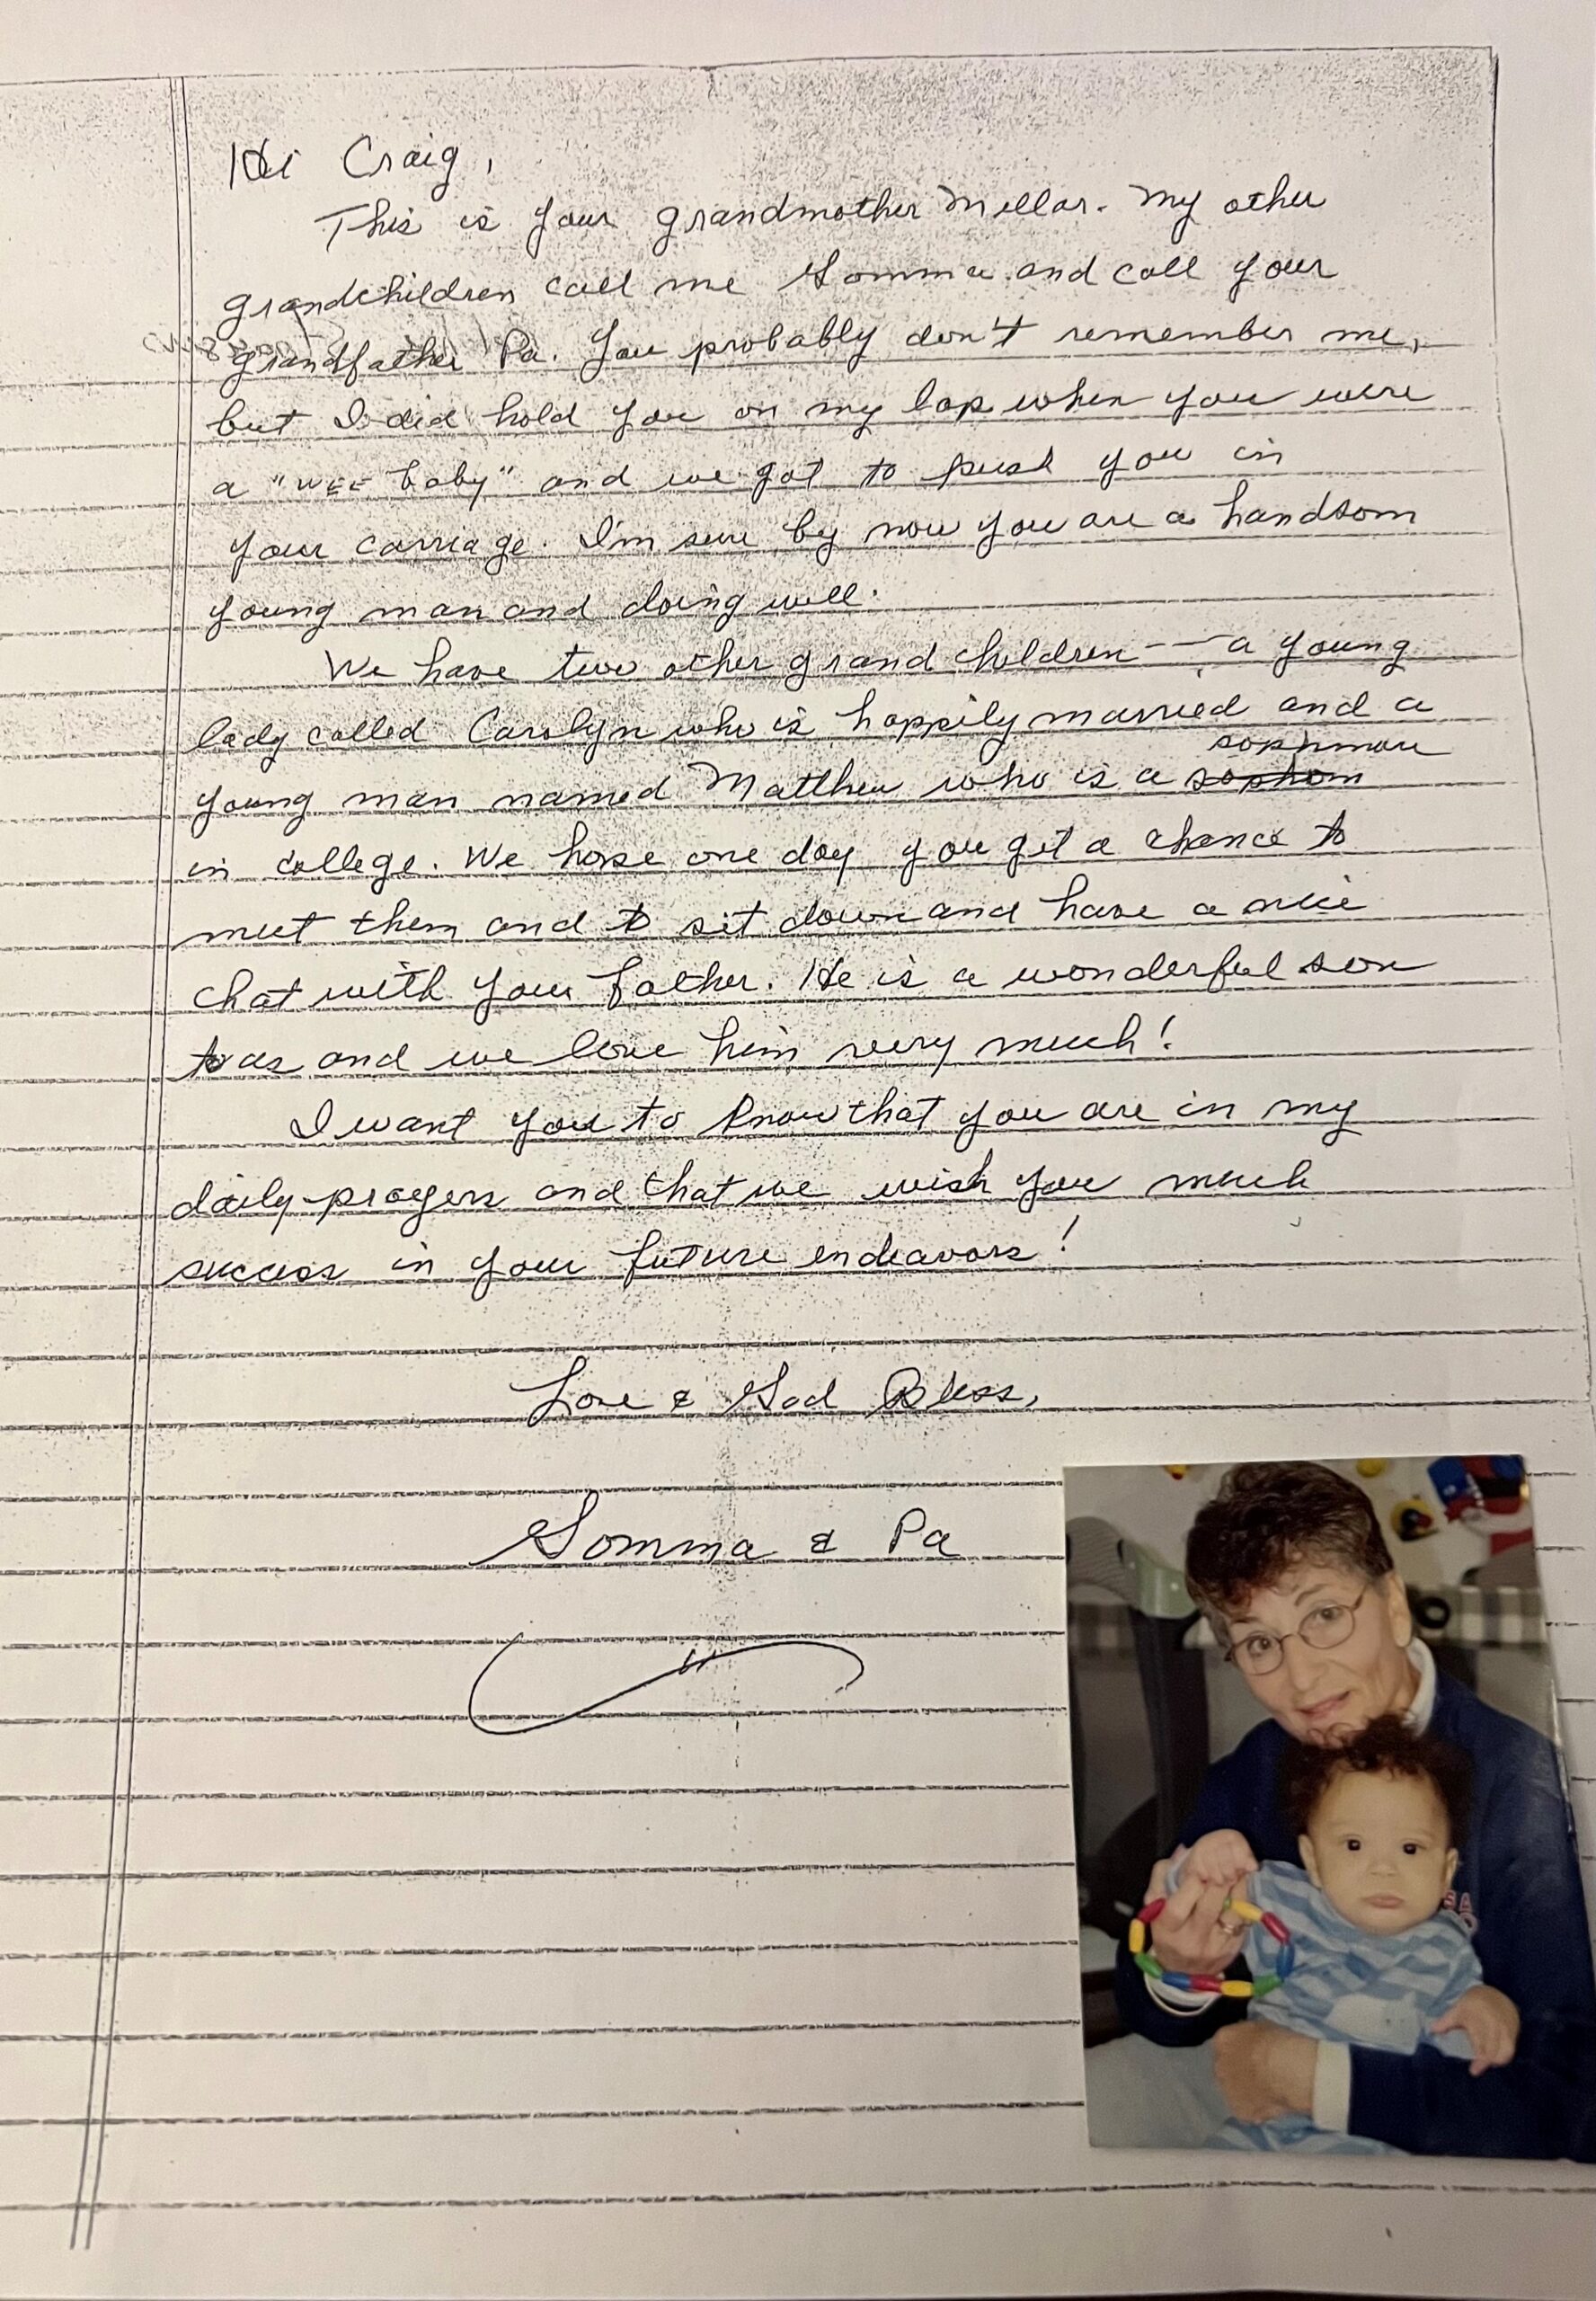 Hi Craig,
This is your grandmother Mellar. My other
grandchildren call me Gomma and call your
grandfather Pa. You probably don't remember me,
but I did hold you on my lap when you were
a "wee baby" and we got to push you in
your carriage. I'm sure by now you are a handsom
young man and doing well.
We have two other grandchildren — a young
lady called Carolyn who is happily married and a
sophmore
young man named Matthew who is a sophom
in college. We hope one day you get a chance to
meet them and to sit down and have a nice
chat with your father. He is a wonderful son
to us and we love him very much!
I want you to know that you are in my
daily prayers and that we wish you much
success in your future endeavors!
Love & God Bless,
Gomma & Pa